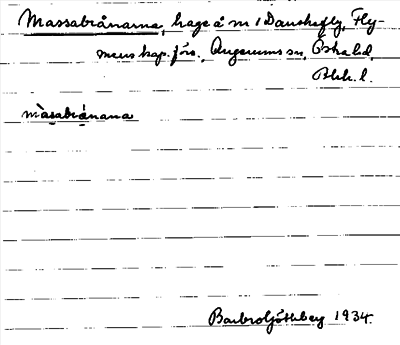 Massabrånarna, hage å nr 1 Danskefly, Fly-
mens kap. förs., Augerums sn, Östra hd,
Blek. l.
màsabránana
Barbro Göthberg 1934.